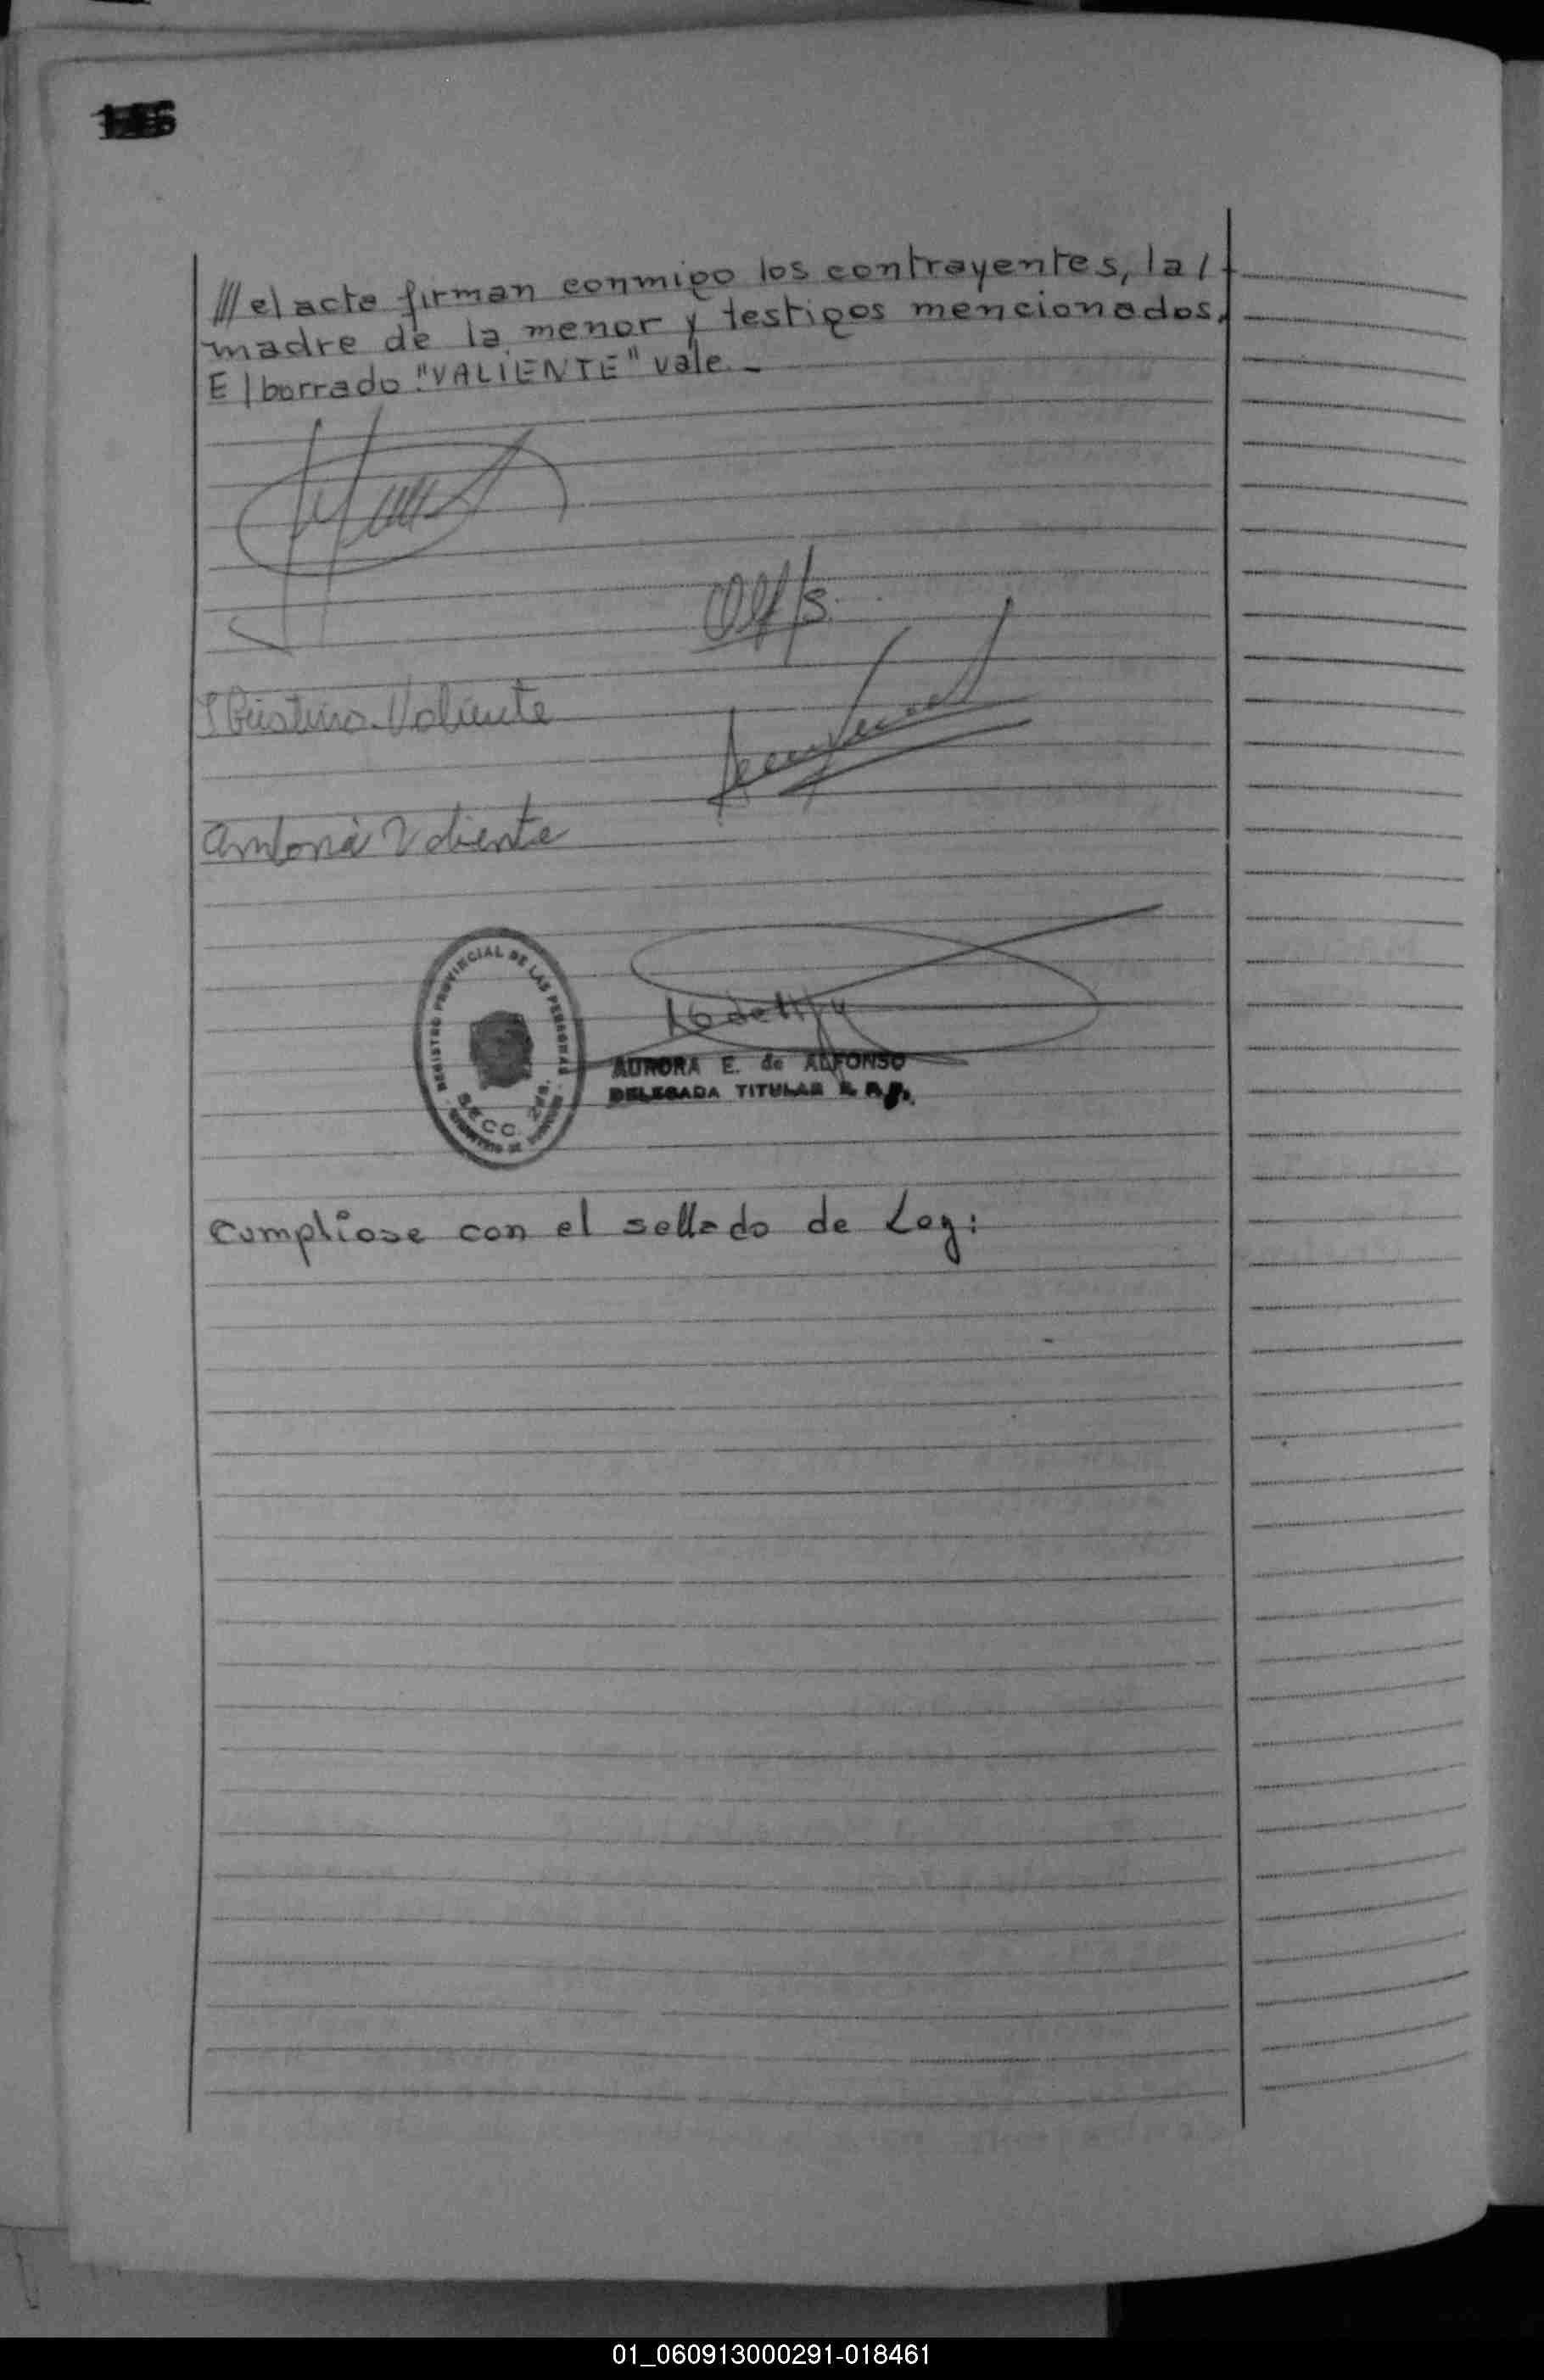 /// el acto firman conmigo los contrayentes, la /
madre de la menor y testigos mencionados.
E/borrado "VALIENTE" vale.-
Cristina Valiente
Antonia Valiente
REGISTRO PROVINCIAL DE LAS PERSONAS
SECC.
AURORA E. de ALFONSO
DELEGADA TITULAR R. P. P.
Cumpliose con el sellado de Ley:
01_060913000291-018461